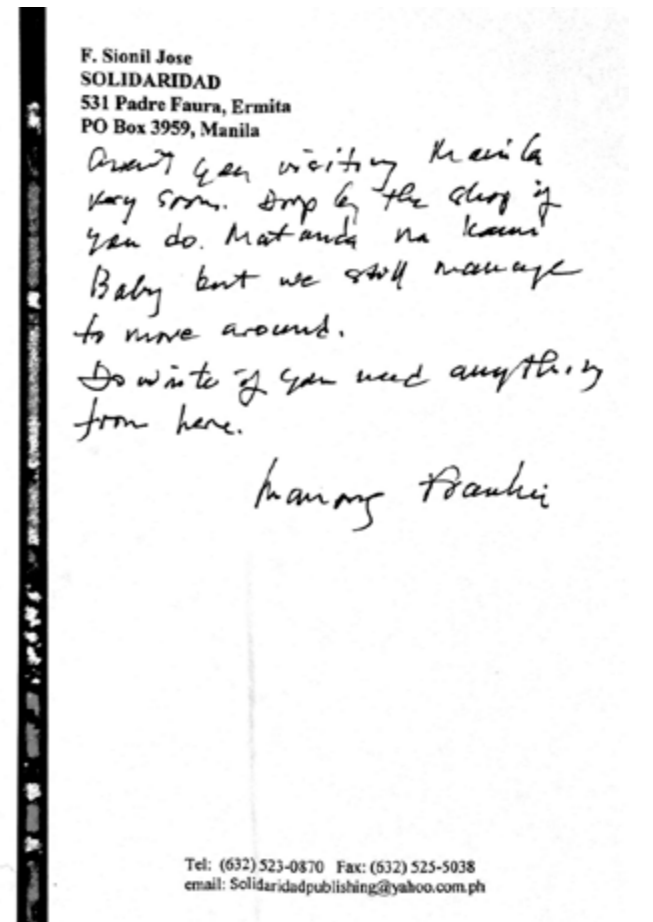 F. Sionil Jose
SOLIDARIDAD
531 Padre Faura, Ermita
PO Box 3959, Manila
Aren't you visiting Manila
very soon. Drop by the shop if
you do. Matanda na kami
Baby but we still manage
to move around.
Do write if you need anything
from here.
Manong Frankie
Tel: (632) 523-0870 Fax: (632) 525-5038
email: Solidaridadpublishing@yahoo.com.ph